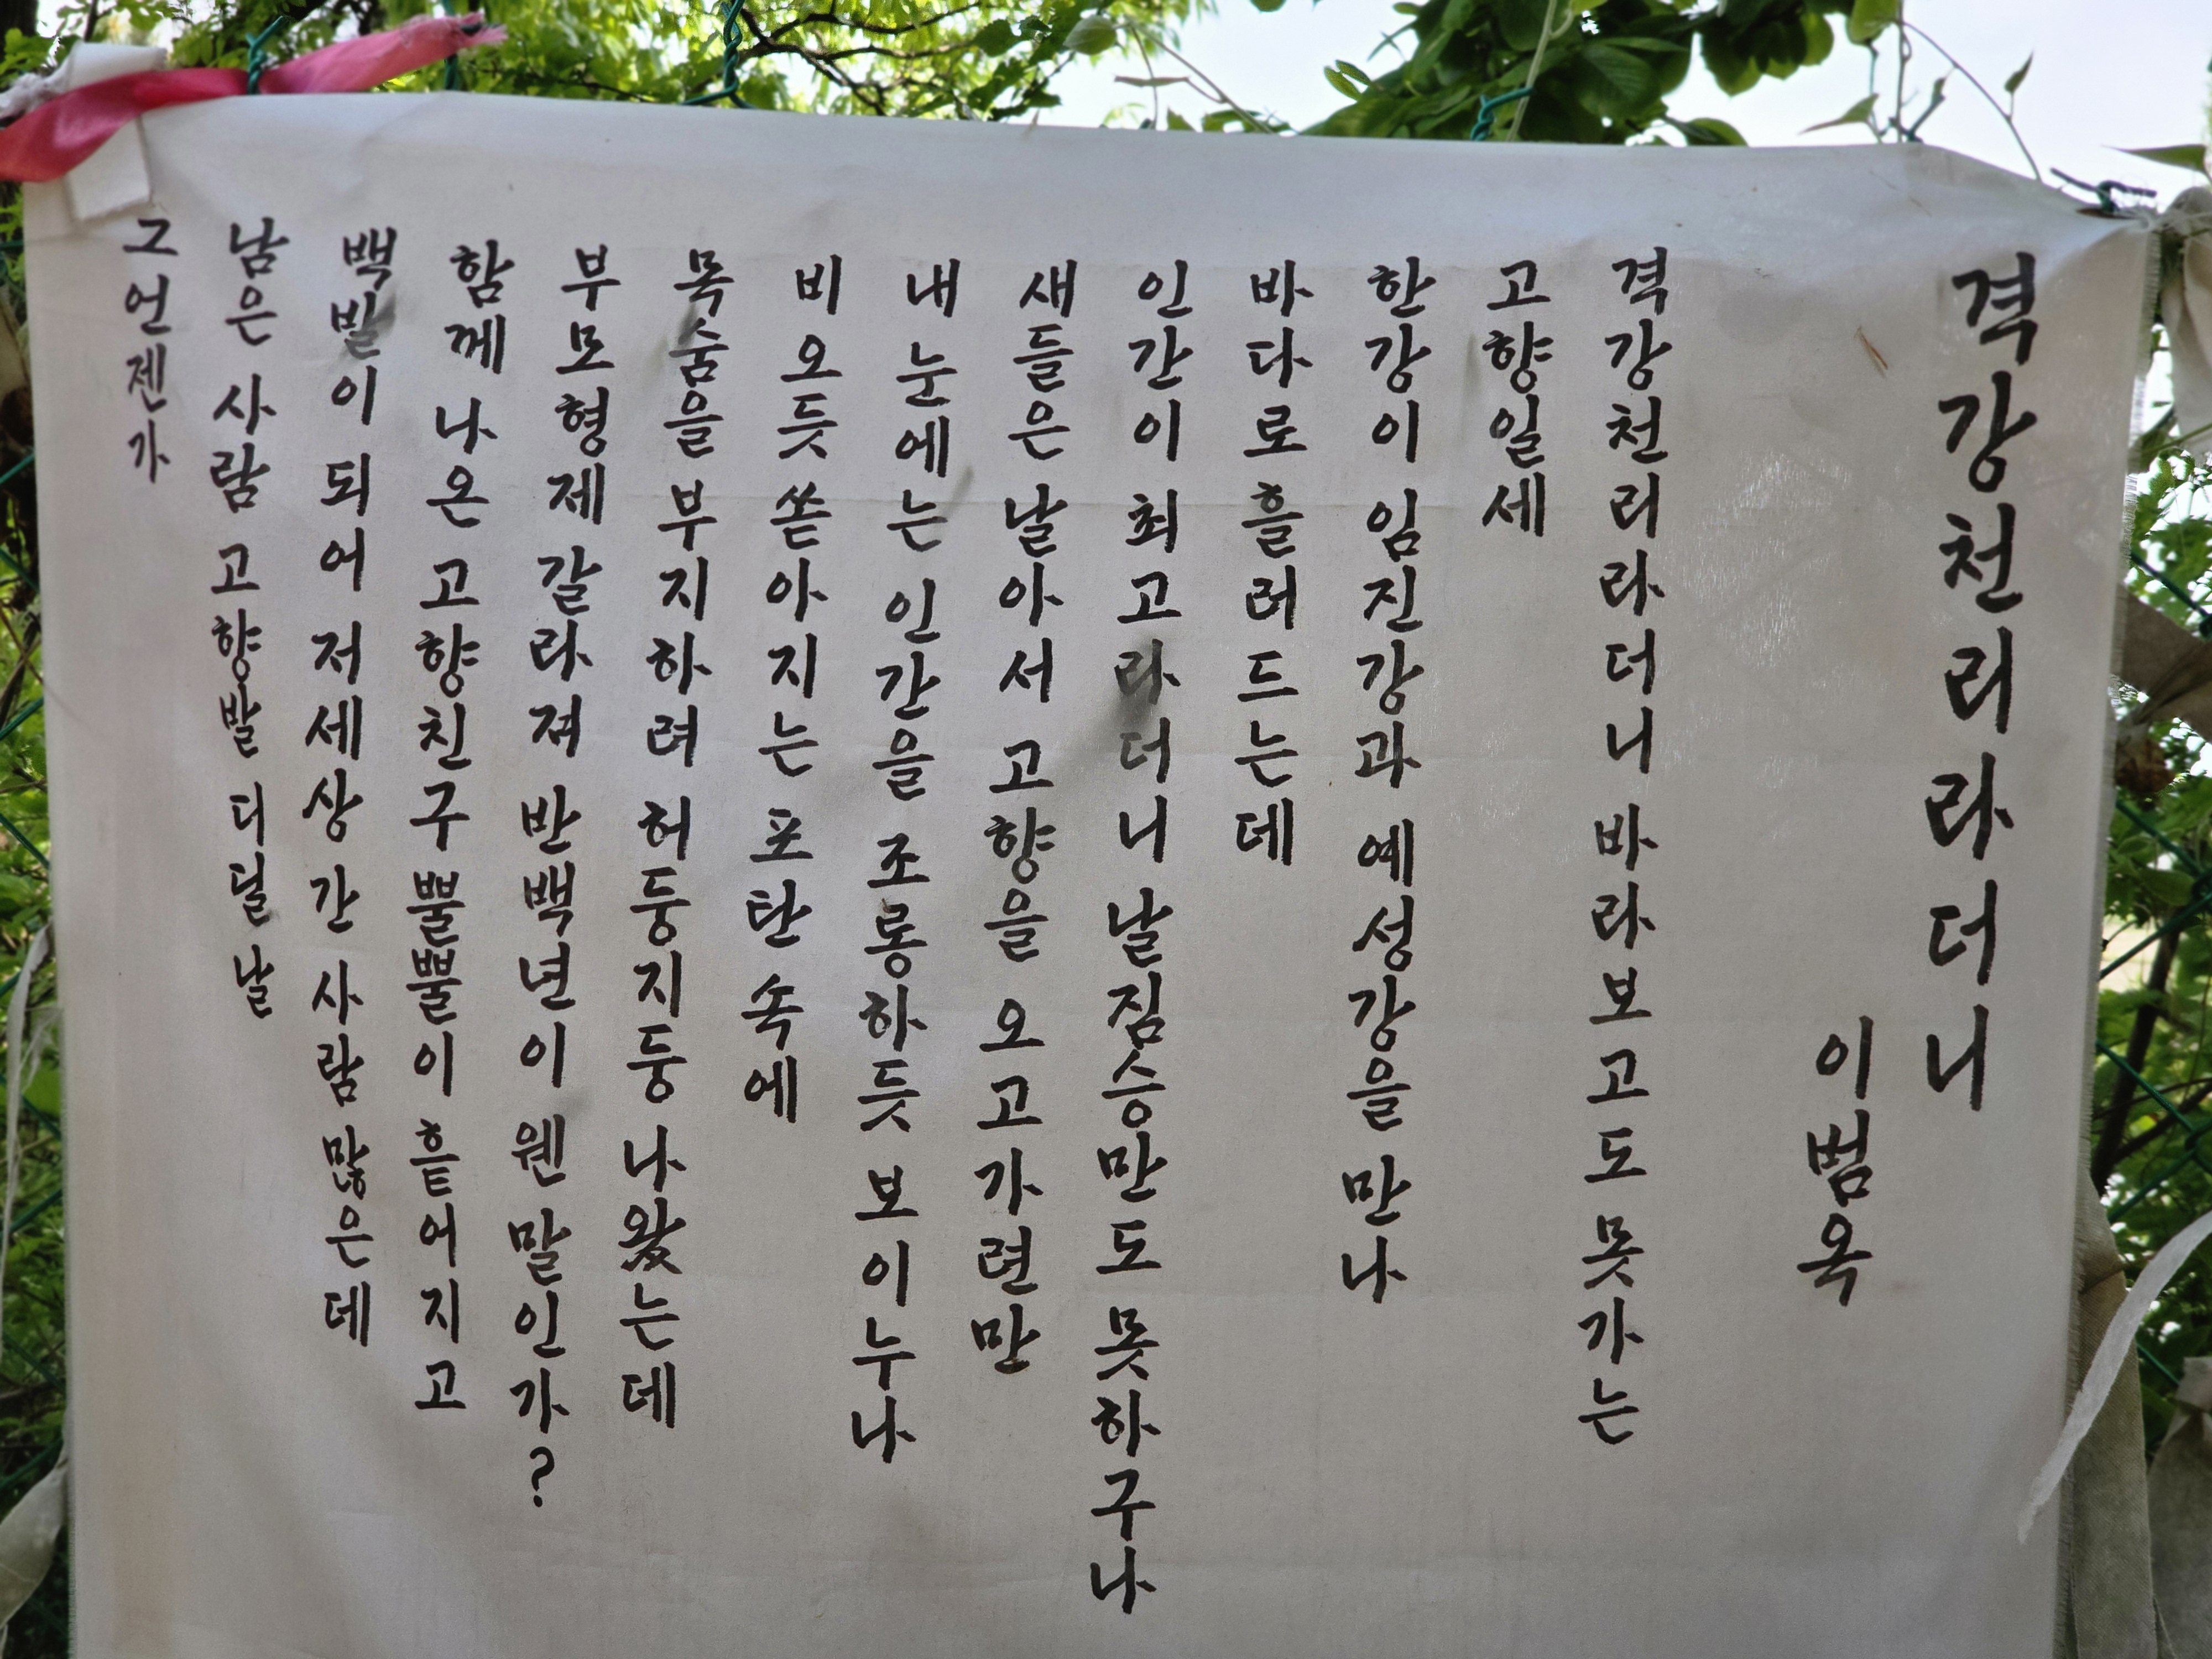 격강천리라더니
이범옥
격강천리라더니 바라보고도 못가는
고향일세
한강이 임진강과 예성강을 만나
바다로 흘러드는데
인간이 최고라더니 날짐승만도 못하구나
새들은 날아서 고향을 오고가련만
내 눈에는 인간을 조롱하듯 보이누나
비오듯 쏟아지는 포탄 속에
목숨을 부지하려 허둥지둥 나왔는데
부모형제 갈라져 반백년이 웬 말인가?
함께 나온 고향친구 뿔뿔이 흩어지고
백발이 되어 저세상 간 사람 많은데
남은 사람 고향발 디딜 날
그 언젠가